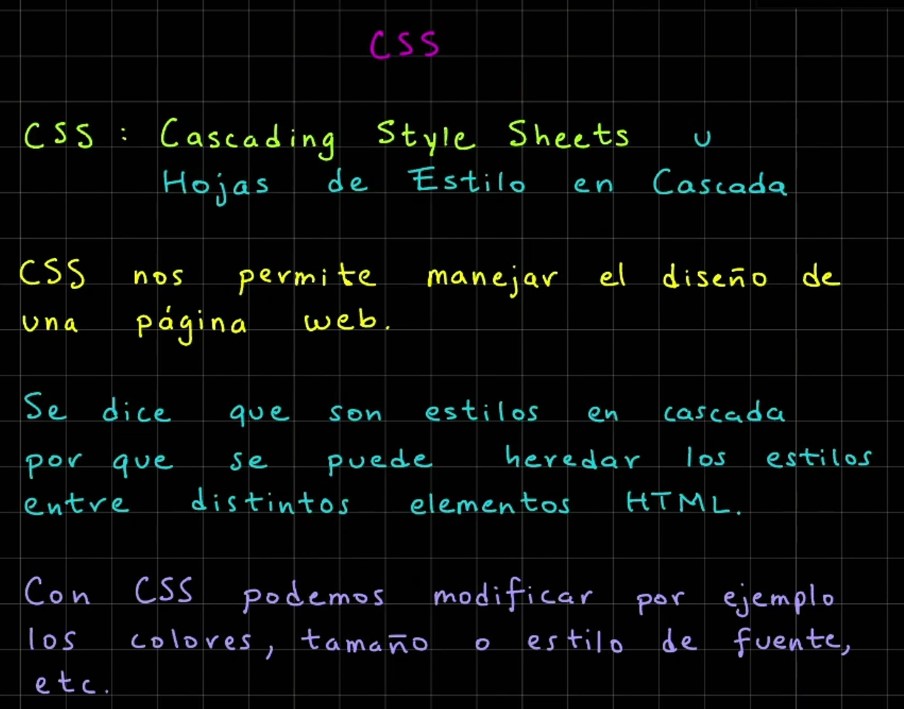 CSS
CSS : Cascading Style Sheets u
Hojas de Estilo en Cascada
CSS nos permite manejar el diseño de
una página web.
Se dice que son estilos en cascada
por que se puede heredar los estilos
entre distintos elementos HTML.
Con CSS podemos modificar por ejemplo
los colores, tamaño o estilo de fuente,
etc.